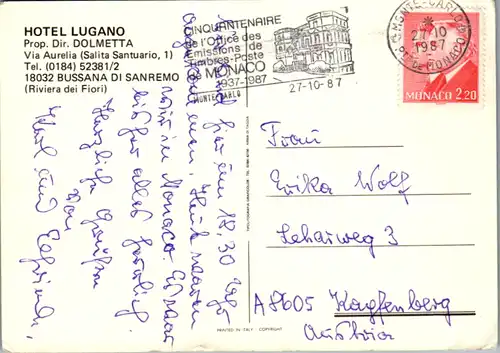 HOTEL LUGANO
Prop. Dir. DOLMETTA
Via Aurelia (Salita Santuario, 1)
Tel. (0184) 52381/2
18032 BUSSANA DI SANREMO
(Riviera dei Fiori)
CINQUANTENAIRE
de l'Office des
Emissions de
Timbres-Poste
MONACO
1937-1987
MONTE-CARLO
27-10-87
MONTE-CARLO
27 10
1987
MONACO
MONACO 2.20
hier um 18.30 Uhr
Heute waren
wir in Monaco. Es war
bisher alles herrlich
Herzliche Grüße
von
Karl und
Frau
Erika Wolf
Leharweg 3
A8605 Kapfenberg
Austria
PRINTED IN ITALY - COPYRIGHT